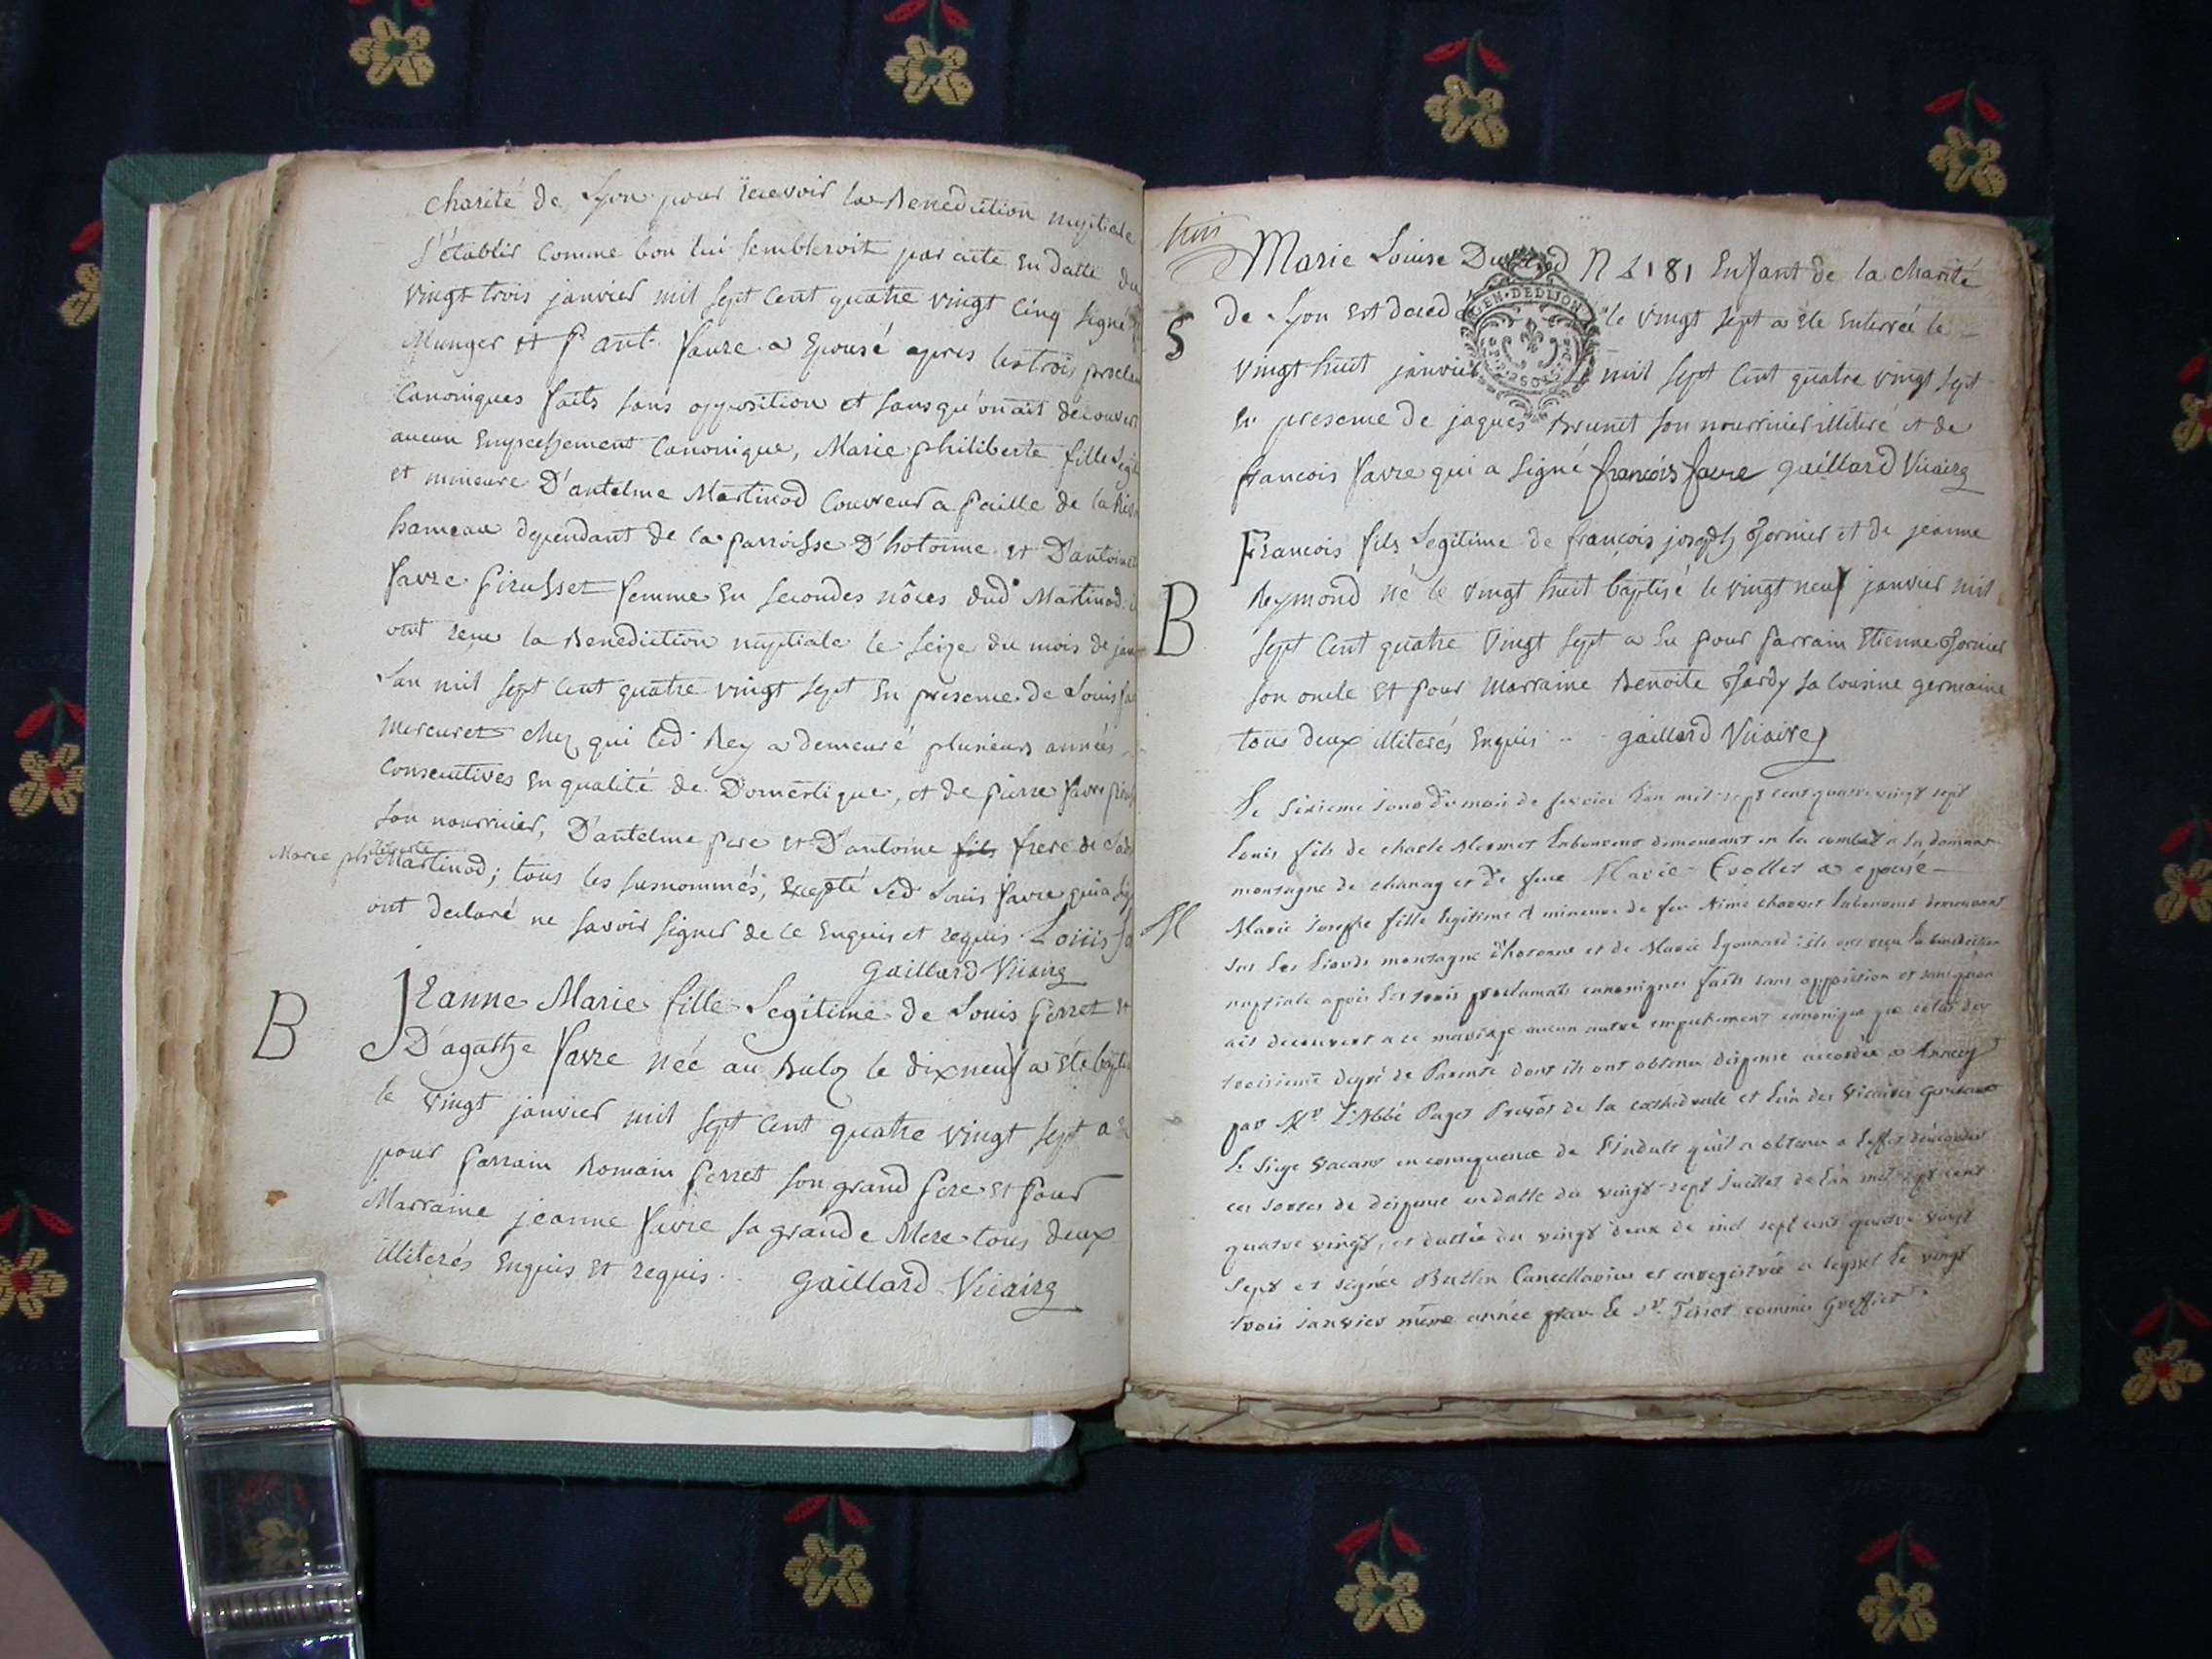 charité de Lyon pour recevoir la Benediction nuptiale
s'établir comme bon lui sembleroit par acte en datte du
vingt trois janvier mil sept cent quatre vingt cinq signé
Munger et P. ant. faure a Epousé apres les trois proclam
Canoniques faits sans opposition et sans qu'on ait decouvert
aucun Empechement Canonique, Marie philiberte fille Legit
et mineure D'antelme Martinod Couvreur a paille de la
hameau dependant de la parroisse D'hotonne et D'antoine
favre pirusset femme en secondes nôces dud. Martinod
ont reçu la Benediction nuptiale le seize du mois de jan
L'an mil sept cent quatre vingt sept en presence de Louis
mercuret chez qui led. Rey a demeuré plusieurs années
Consecutives en qualité de Domestique, et de pierre favre
son nourricier, D'antelme pere et D'antoine fils frere de
Marie philiberte Martinod; tous les susnommés, Excepté led Louis favre qui a sig
ont declaré ne savoir signer de ce enquis et requis. Louis
Gaillard Vicaire
B
Jeanne Marie fille Legitime de Louis perret et
D'agathe favre née au le dixneuf a été bapti
le vingt janvier mil sept cent quatre vingt sept a
pour parrain Romain perret son grand pere et pour
Marraine jeanne favre sa grande Mere tous deux
illiterés enquis et requis.. Gaillard Vicaire
trois
Marie Louise N 2181 Enfant de la charité
S
de Lyon est le vingt sept a été enterrée le
GEN. DE DIJON
vingt huit janvier mil sept cent quatre vingt sept
en presence de jaques Brunet son nourricier illiteré et de
francois favre qui a signé françois favre gaillard Vicaire
B
Francois fils Legitime de françois joseph et de jeanne
Reymond né le vingt huit baptisé le vingt neuf janvier mil
sept cent quatre vingt sept a eu pour parrain Etienne
son oncle et pour marraine Benoite sa cousine germaine
tous deux illiterés enquis .. gaillard Vicaire
Le sixieme jour du mois de fevrier L'an mil sept cent quatre vingt sept
Louis fils de charle Mermet Laboureur demeurant en la
montagne de chanay et de feue Marie Evollet a epousé
M
Marie Josephe fille legitime et mineure de feu Aimé Laboureur demeurant
sur Les montagne d'hotonne et de Marie Lyonnard : ils ont reçu la benediction
nuptiale apres les trois proclamats canoniques faits sans opposition et sans qu'on
ait decouvert a ce mariage aucun autre empechement canonique que celui du
troisieme degré de Parenté dont ils ont obtenu dispense accordée a Annecy
par Mr L'Abbé Puget Prevôt de la cathedrale et L'un des Vicaires Generaux
Le siege vacant en consequence de l'indult qu'il a obtenu a l'effet d'accorder
ces sortes de dispense en datte du vingt sept Juillet de L'an mil sept cent
quatre vingt, et dattée du vingt deux de mil sept cent quatre vingt
sept et signée Buttin Cancellarius et enregistrée a Seyssel le vingt
trois Janvier même année par le Sr Tissot commis Greffier